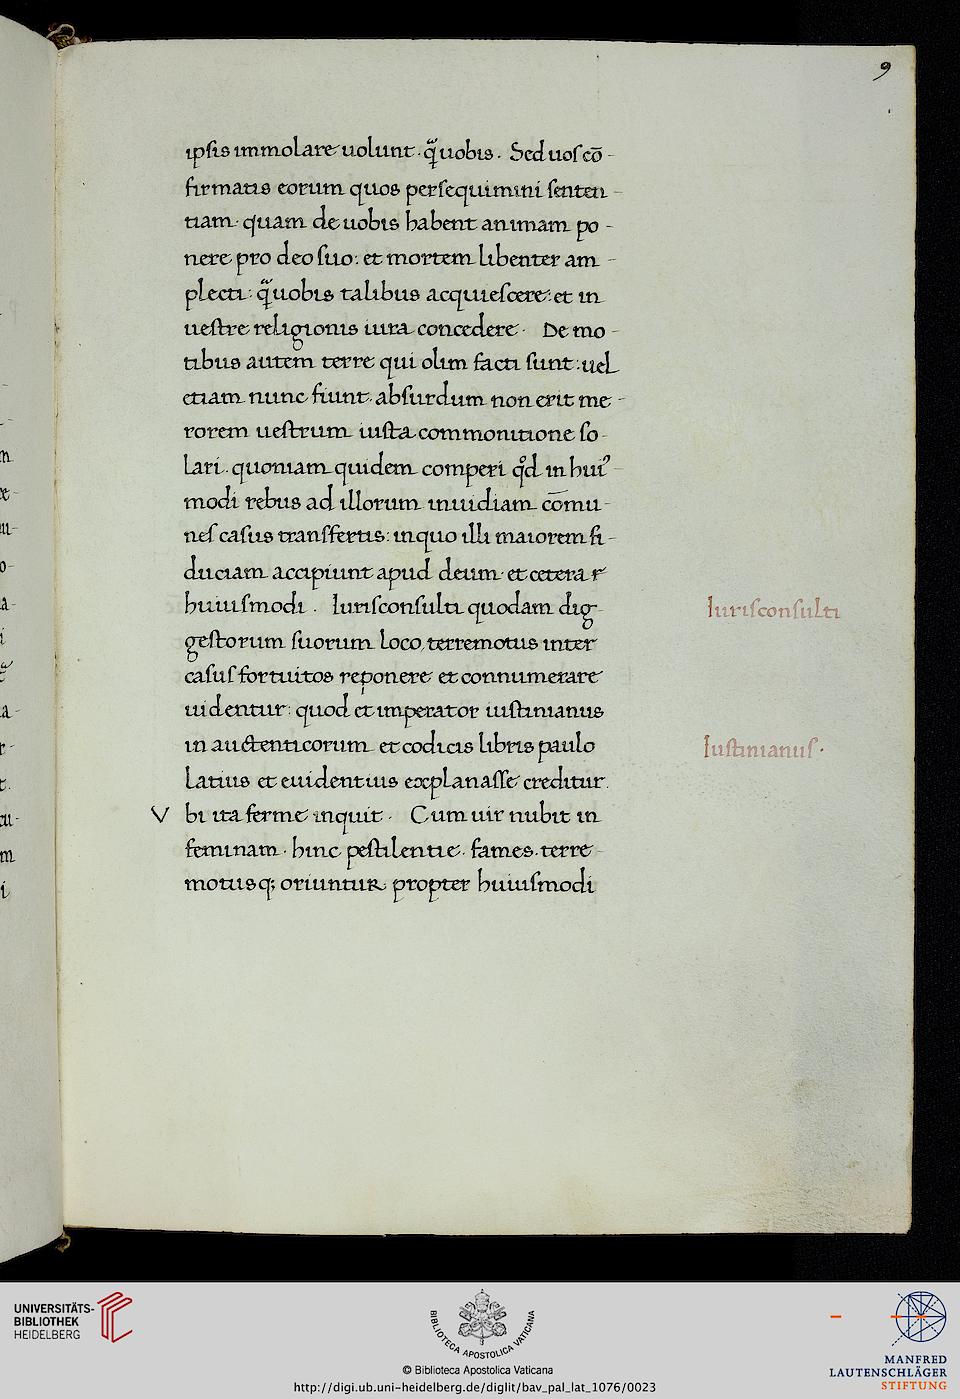 9
ipsis immolare uolunt. q̃uobis. Sed uos cō-
firmatis eorum quos persequimini senten-
tiam. quam de uobis habent animam po-
nere pro deo suo: et mortem libenter am-
plecti: q̃uobis talibus acquiescere: et in
uestre religionis iura concedere. De mo-
tibus autem terre qui olim facti sunt: uel
etiam nunc fiunt. absurdum non erit me-
rorem uestrum iusta commonitione so-
lari. quoniam quidem comperi qd̊ in hui'-
modi rebus ad illorum inuidiam cōmu-
nes casus transfertis: in quo illi maiorem fi-
duciam accipiunt apud deum. et cetera
huiusmodi. Iurisconsulti quodam dig-
gestorum suorum loco, terremotus inter
casus fortuitos reponere et connumerare
uidentur: quod et imperator iustinianus
in auctenticorum et codicis libris paulo
latius et euidentius explanasse creditur.
V bi ita ferme inquit. Cum uir nubit in
feminam. hinc pestilentie. fames. terre-
motusq; oriuntur propter huiusmodi
Iurisconsulti
Iustinianus.
UNIVERSITÄTS-
BIBLIOTHEK
HEIDELBERG
BIBLIOTECA APOSTOLICA VATICANA
© Biblioteca Apostolica Vaticana
http://digi.ub.uni-heidelberg.de/diglit/bav_pal_lat_1076/0023
MANFRED
LAUTENSCHLÄGER
STIFTUNG